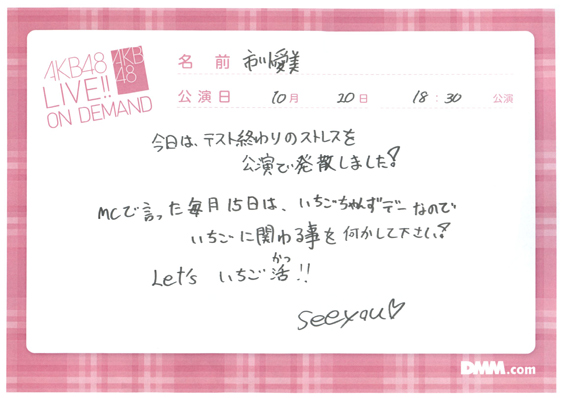 AKB48
LIVE!!
ON DEMAND
AKB
48
名前 市川愛美
公演日 10月 20日 18:30 公演
今日は、テスト終わりのストレスを
公演で発散しました!
MCで言った毎月15日は、いちごちゃんずデーなので
いちごに関わる事を何かして下さい!
かつ
Let's いちご活!!
seeyou♡
DMM.com